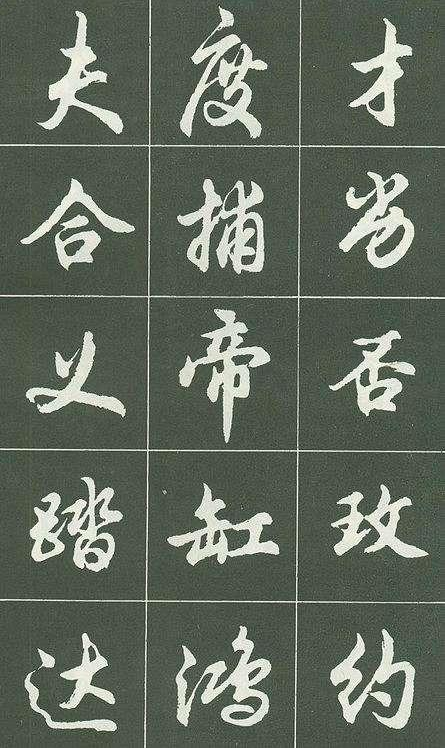 才劣否玫约
度捕帝缸鸿
夫合义踏达